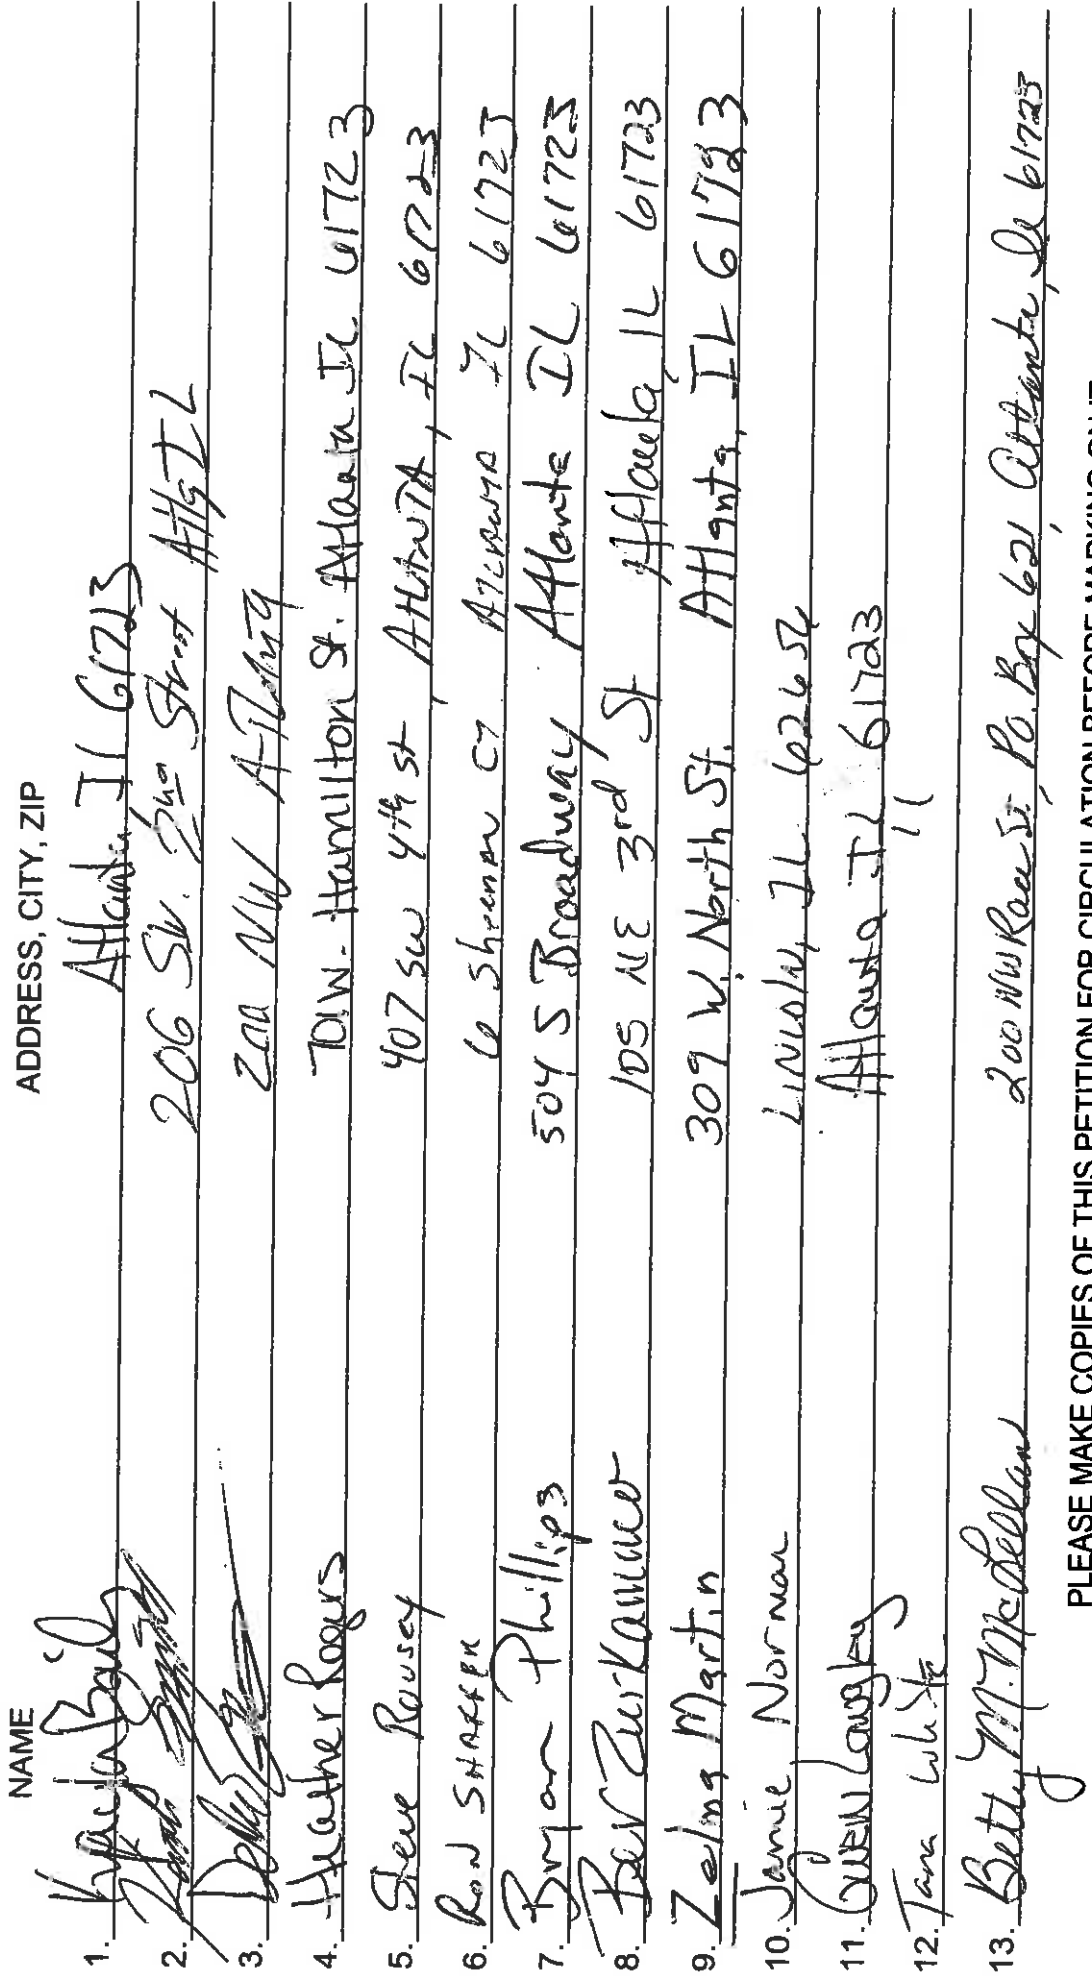 NAME ADDRESS, CITY, ZIP
1. Bail Atlanta Il 61723
2. 206 SW. 2nd Street Atl IL
3. 200 NW Atlanta
4. Heather Rogers 701 W. Hamilton St. Atlanta IL 61723
5. Steve Rousey 407 SW 4th St Atlanta, IL 61723
6. RON SHAFFER 6 Sherman CT Atlanta IL 61723
7. Bryan Phillips 504 S Broadway Atlanta IL 61723
8. Bev Zurkammer 105 NE 3rd St Atlanta, IL 61723
9. Zelma Martin 309 W. North St. Atlanta, IL 61723
10. Jamie Norman Lincoln, IL 62656
11. GWEN Langley Atlanta IL 61723
12. Tana White 11
13. Betty M. McLellan 200 NW Race St., P.O. Box 621, Atlanta, Il 61723
PLEASE MAKE COPIES OF THIS PETITION FOR CIRCULATION BEFORE MARKING ON IT